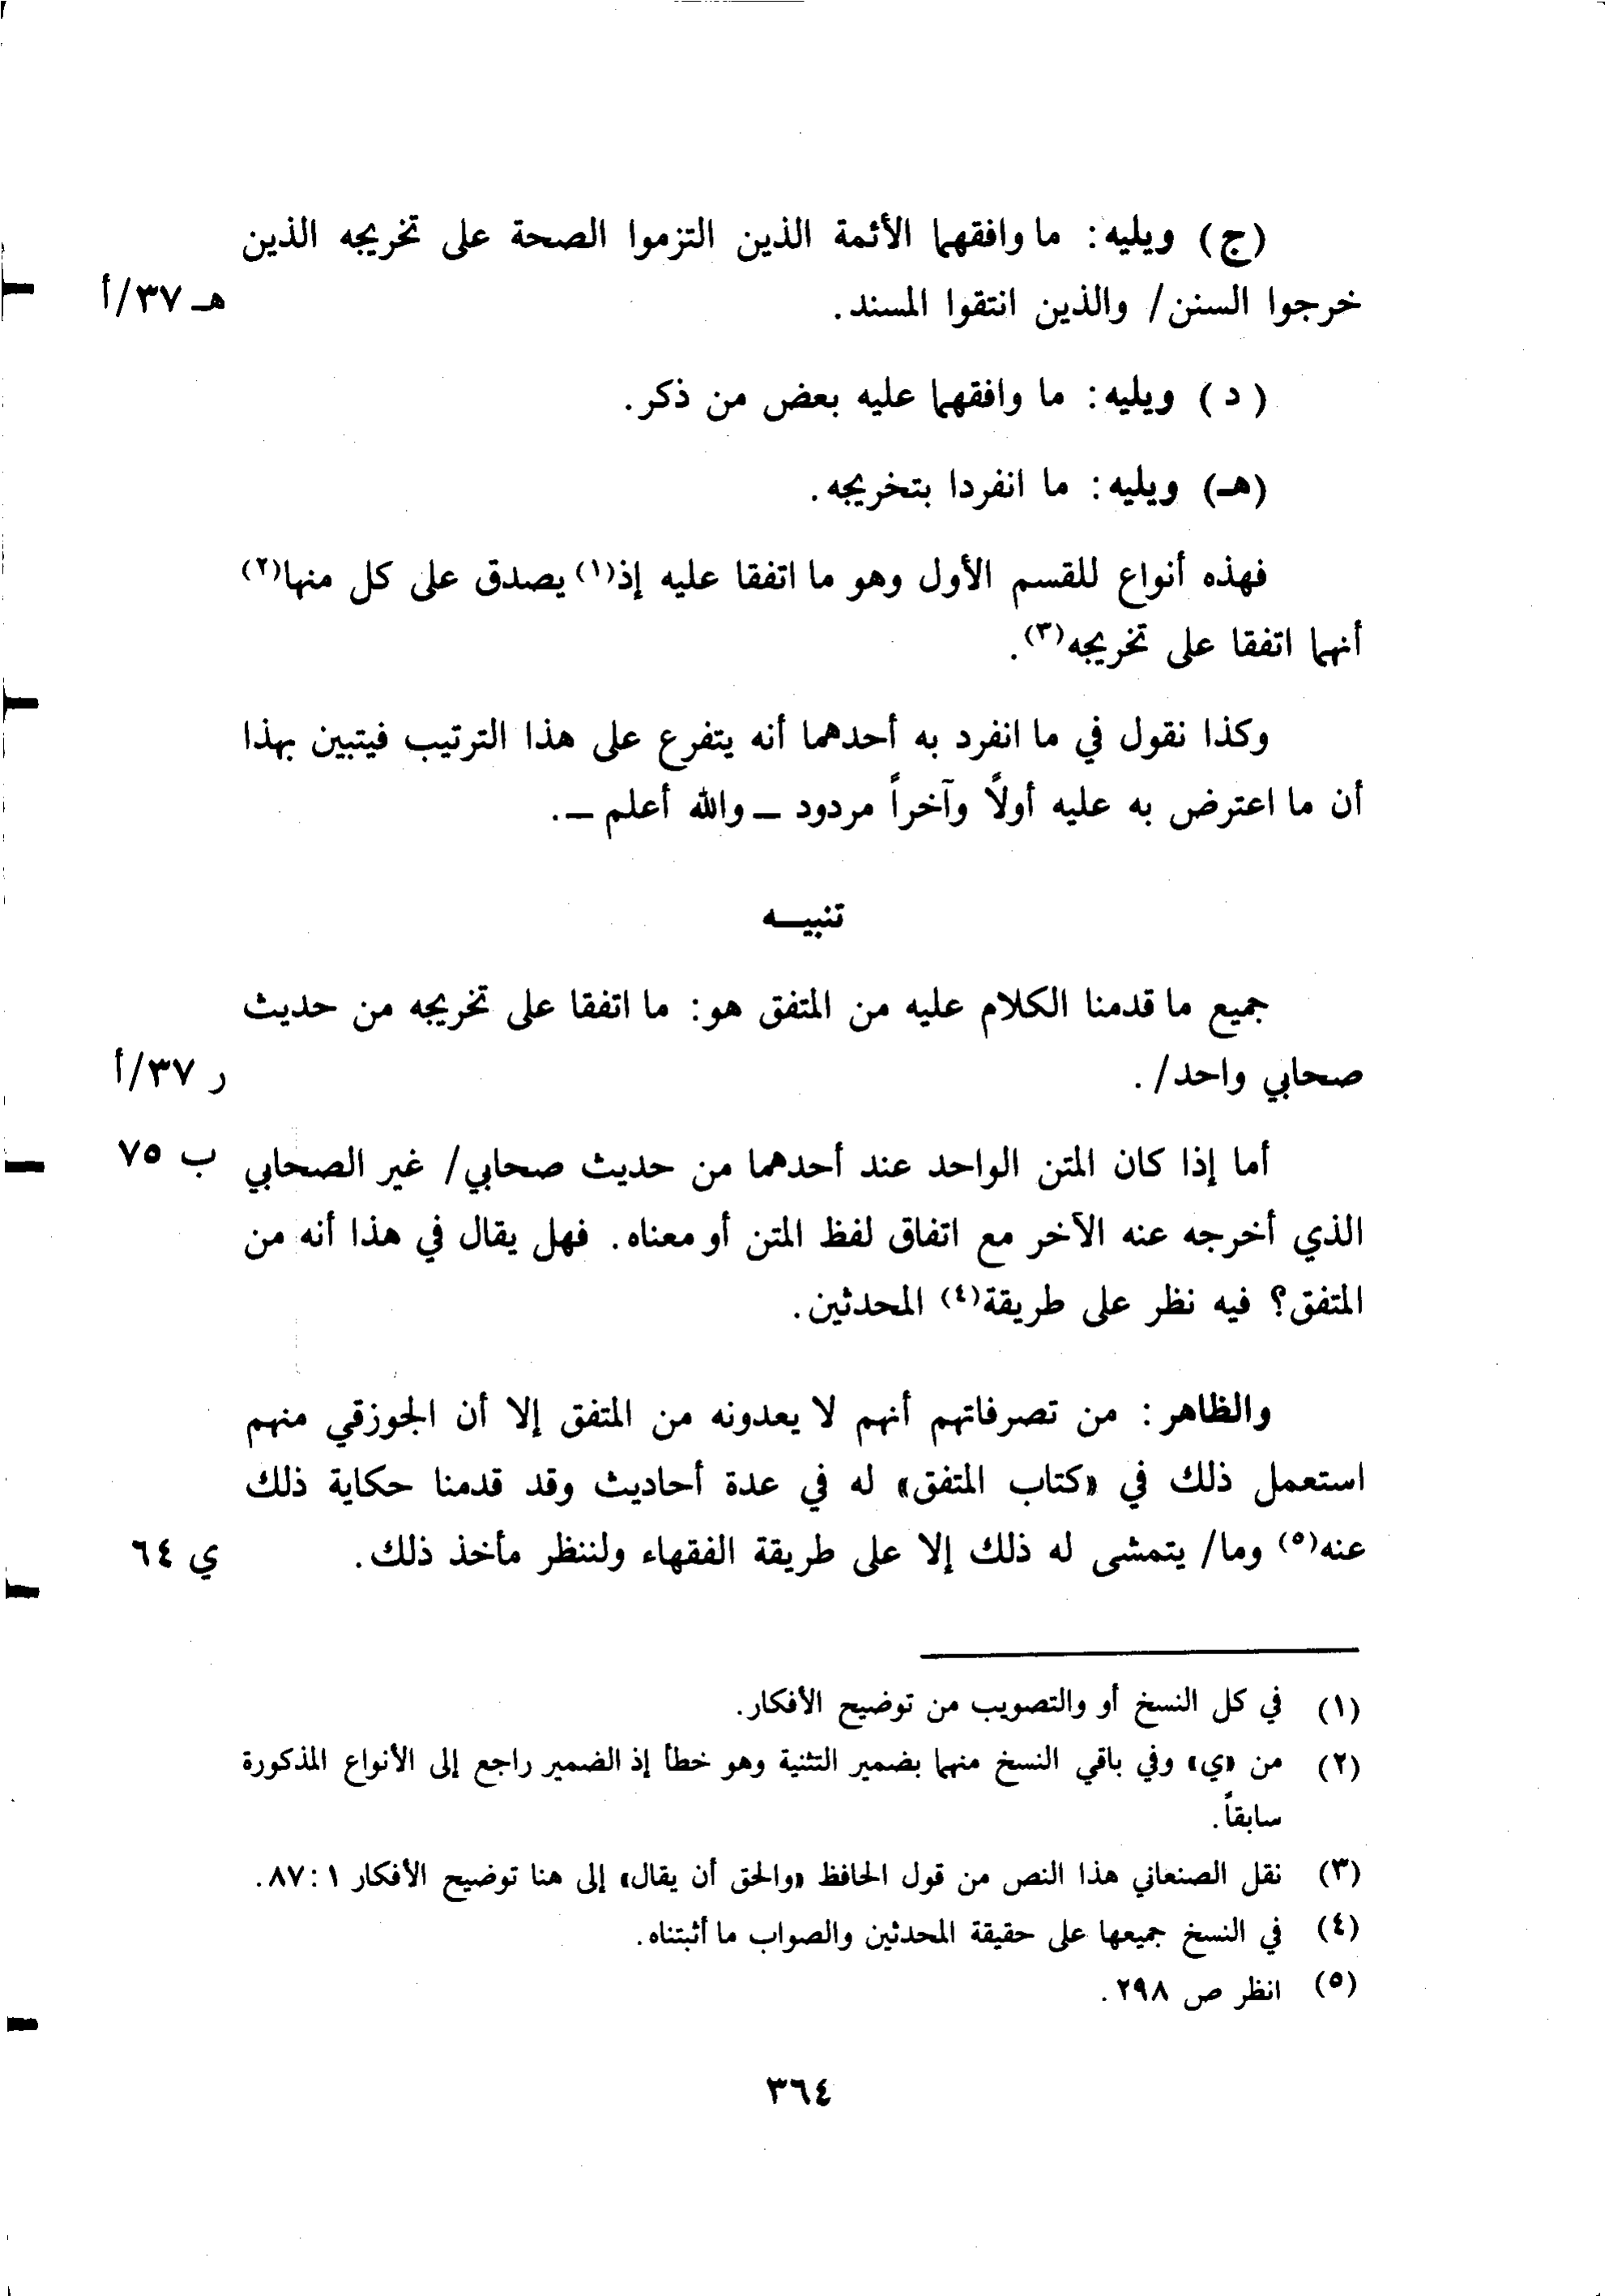 (ج) ويليه: ما وافقهما الأئمة الذين التزموا الصحة على تخريجه الذين
خرجوا السنن/ والذين انتقوا المسند.
هـ ٣٧/أ
(د) ويليه: ما وافقهما عليه بعض من ذكر.
(هـ) ويليه: ما انفردا بتخريجه.
فهذه أنواع للقسم الأول وهو ما اتفقا عليه إذ(١) يصدق على كل منها(٢)
أنهما اتفقا على تخريجه(٣).
وكذا نقول في ما انفرد به أحدهما أنه يتفرع على هذا الترتيب فيتبين بهذا
أن ما اعترض به عليه أولاً وآخراً مردود – والله أعلم –.
تنبيـــه
جميع ما قدمنا الكلام عليه من المتفق هو: ما اتفقا على تخريجه من حديث
صحابي واحد/.
ر ٣٧/أ
أما إذا كان المتن الواحد عند أحدهما من حديث صحابي/ غير الصحابي
ب ٧٥
الذي أخرجه عنه الآخر مع اتفاق لفظ المتن أو معناه. فهل يقال في هذا أنه من
المتفق؟ فيه نظر على طريقة(٤) المحدثين.
والظاهر: من تصرفاتهم أنهم لا يعدونه من المتفق إلا أن الجوزقي منهم
استعمل ذلك في «كتاب المتفق» له في عدة أحاديث وقد قدمنا حكاية ذلك
عنه(٥) وما/ يتمشى له ذلك إلا على طريقة الفقهاء ولننظر مأخذ ذلك.
ي ٦٤
(١) في كل النسخ أو والتصويب من توضيح الأفكار.
(٢) من «ي» وفي باقي النسخ منهما بضمير التثنية وهو خطأ إذ الضمير راجع إلى الأنواع المذكورة
سابقاً.
(٣) نقل الصنعاني هذا النص من قول الحافظ «والحق أن يقال» إلى هنا توضيح الأفكار ١:٨٧.
(٤) في النسخ جميعها على حقيقة المحدثين والصواب ما أثبتناه.
(٥) انظر ص ٢٩٨.
٣٦٤